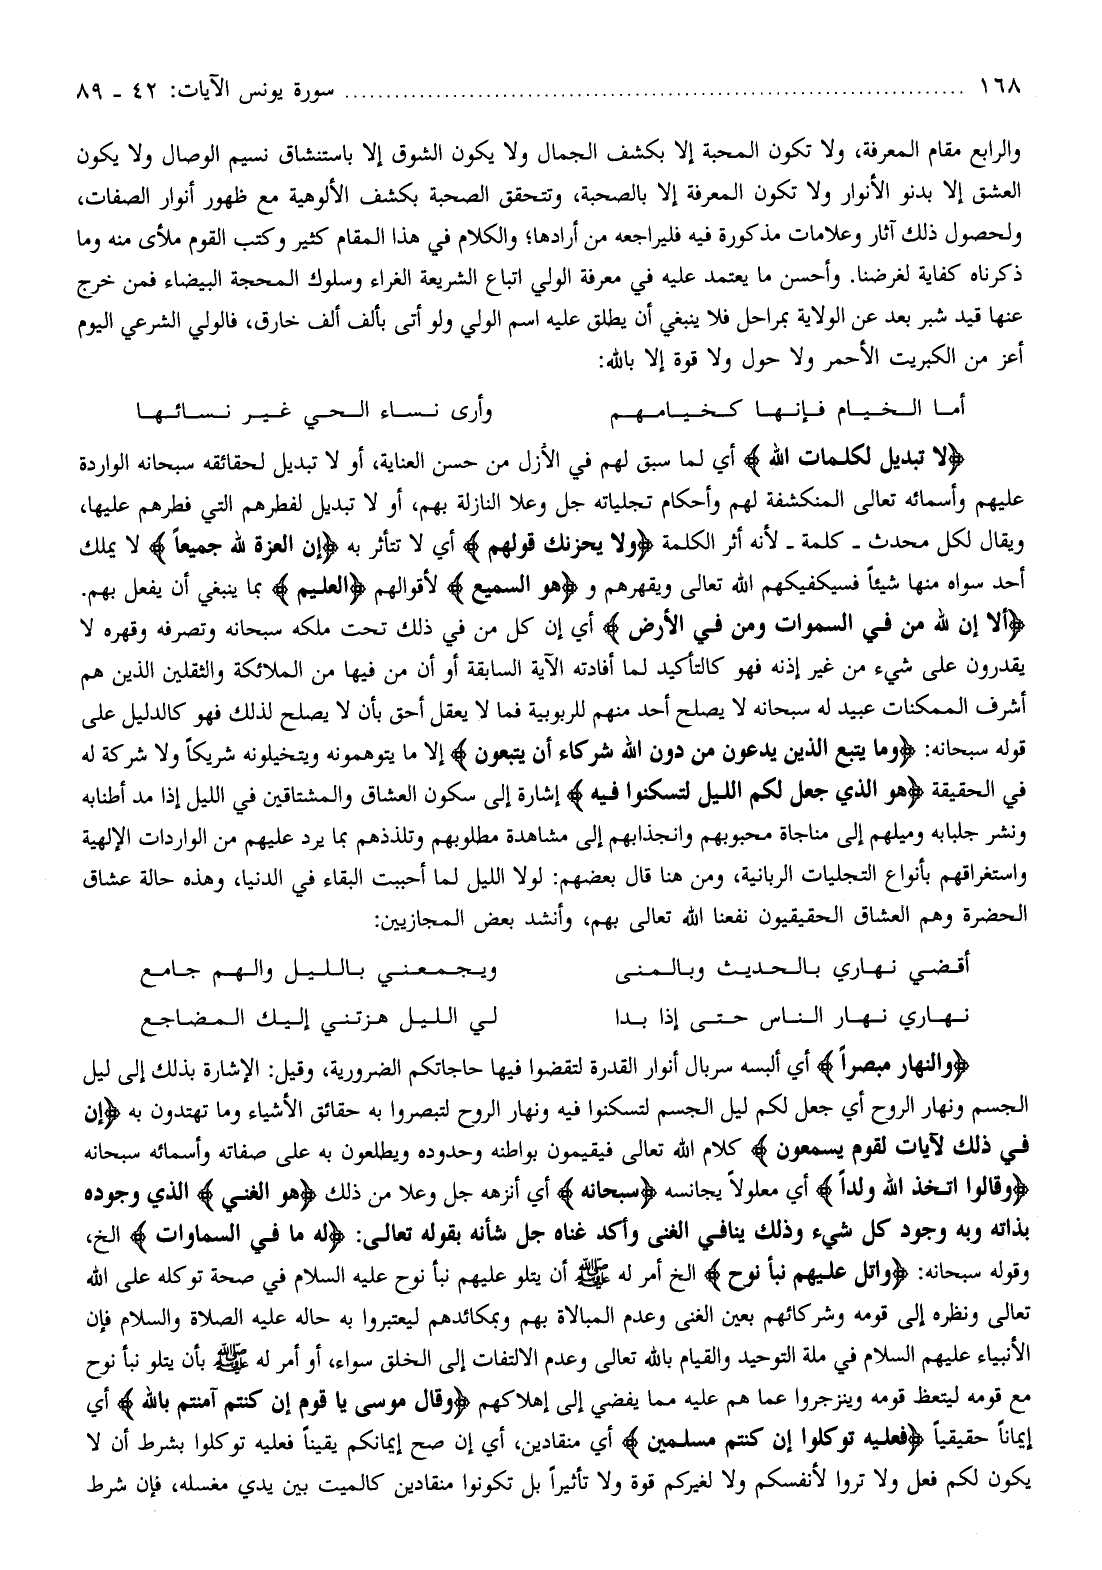 ١٦٨ ........................................ سورة يونس الآيات: ٤٢ ـ ٨٩
والرابع مقام المعرفة، ولا تكون المحبة إلا بكشف الجمال ولا يكون الشوق إلا باستنشاق نسيم الوصال ولا يكون
العشق إلا بدنو الأنوار ولا تكون المعرفة إلا بالصحبة، وتتحقق الصحبة بكشف الألوهية مع ظهور أنوار الصفات،
ولحصول ذلك آثار وعلامات مذكورة فيه فليراجعه من أرادها؛ والكلام في هذا المقام كثير وكتب القوم ملأى منه وما
ذكرناه كفاية لغرضنا. وأحسن ما يعتمد عليه في معرفة الولي اتباع الشريعة الغراء وسلوك المحجة البيضاء فمن خرج
عنها قيد شبر بعد عن الولاية بمراحل فلا ينبغي أن يطلق عليه اسم الولي ولو أتى بألف ألف خارق، فالولي الشرعي اليوم
أعز من الكبريت الأحمر ولا حول ولا قوة إلا بالله:
أما الخيام فإنها كخيامهم وأرى نساء الحي غير نسائها
﴿لا تبديل لكلمات الله﴾ أي لما سبق لهم في الأزل من حسن العناية، أو لا تبديل لحقائقه سبحانه الواردة
عليهم وأسمائه تعالى المنكشفة لهم وأحكام تجلياته جل وعلا النازلة بهم، أو لا تبديل لفطرهم التي فطرهم عليها،
ويقال لكل محدث ـ كلمة ـ لأنه أثر الكلمة ﴿ولا يحزنك قولهم﴾ أي لا تتأثر به ﴿إن العزة لله جميعاً﴾ لا يملك
أحد سواه منها شيئاً فسيكفيكهم الله تعالى ويقهرهم و ﴿هو السميع﴾ لأقوالهم ﴿العليم﴾ بما ينبغي أن يفعل بهم.
﴿ألا إن لله من في السموات ومن في الأرض﴾ أي إن كل من في ذلك تحت ملكه سبحانه وتصرفه وقهره لا
يقدرون على شيء من غير إذنه فهو كالتأكيد لما أفادته الآية السابقة أو أن من فيها من الملائكة والثقلين الذين هم
أشرف الممكنات عبيد له سبحانه لا يصلح أحد منهم للربوبية فما لا يعقل أحق بأن لا يصلح لذلك فهو كالدليل على
قوله سبحانه: ﴿وما يتبع الذين يدعون من دون الله شركاء أن يتبعون﴾ إلا ما يتوهمونه ويتخيلونه شريكاً ولا شركة له
في الحقيقة ﴿هو الذي جعل لكم الليل لتسكنوا فيه﴾ إشارة إلى سكون العشاق والمشتاقين في الليل إذا مد أطنابه
ونشر جلبابه وميلهم إلى مناجاة محبوبهم وانجذابهم إلى مشاهدة مطلوبهم وتلذذهم بما يرد عليهم من الواردات الإلهية
واستغراقهم بأنواع التجليات الربانية، ومن هنا قال بعضهم: لولا الليل لما أحببت البقاء في الدنيا، وهذه حالة عشاق
الحضرة وهم العشاق الحقيقيون نفعنا الله تعالى بهم، وأنشد بعض المجازيين:
أقضي نهاري بالحديث وبالمنى ويجمعني بالليل والهم جامع
نهاري نهار الناس حتى إذا بدا لي الليل هزتني إليك المضاجع
﴿والنهار مبصراً﴾ أي ألبسه سربال أنوار القدرة لتقضوا فيها حاجاتكم الضرورية، وقيل: الإشارة بذلك إلى ليل
الجسم ونهار الروح أي جعل لكم ليل الجسم لتسكنوا فيه ونهار الروح لتبصروا به حقائق الأشياء وما تهتدون به ﴿إن
في ذلك لآيات لقوم يسمعون﴾ كلام الله تعالى فيقيمون بواطنه وحدوده ويطلعون به على صفاته وأسمائه سبحانه
﴿وقالوا اتخذ الله ولداً﴾ أي معلولاً يجانسه ﴿سبحانه﴾ أي أنزهه جل وعلا من ذلك ﴿هو الغني﴾ الذي وجوده
بذاته وبه وجود كل شيء وذلك ينافي الغنى وأكد غناه جل شأنه بقوله تعالى: ﴿له ما في السماوات﴾ الخ،
وقوله سبحانه: ﴿واتل عليهم نبأ نوح﴾ الخ أمر له ﷺ أن يتلو عليهم نبأ نوح عليه السلام في صحة توكله على الله
تعالى ونظره إلى قومه وشركائهم بعين الغنى وعدم المبالاة بهم وبمكائدهم ليعتبروا به حاله عليه الصلاة والسلام فإن
الأنبياء عليهم السلام في ملة التوحيد والقيام بالله تعالى وعدم الالتفات إلى الخلق سواء، أو أمر له ﷺ بأن يتلو نبأ نوح
مع قومه ليتعظ قومه وينزجروا عما هم عليه مما يفضي إلى إهلاكهم ﴿وقال موسى يا قوم إن كنتم آمنتم بالله﴾ أي
إيماناً حقيقياً ﴿فعليه توكلوا إن كنتم مسلمين﴾ أي منقادين، أي إن صح إيمانكم يقيناً فعليه توكلوا بشرط أن لا
يكون لكم فعل ولا تروا لأنفسكم ولا لغيركم قوة ولا تأثيراً بل تكونوا منقادين كالميت بين يدي مغسله، فإن شرط